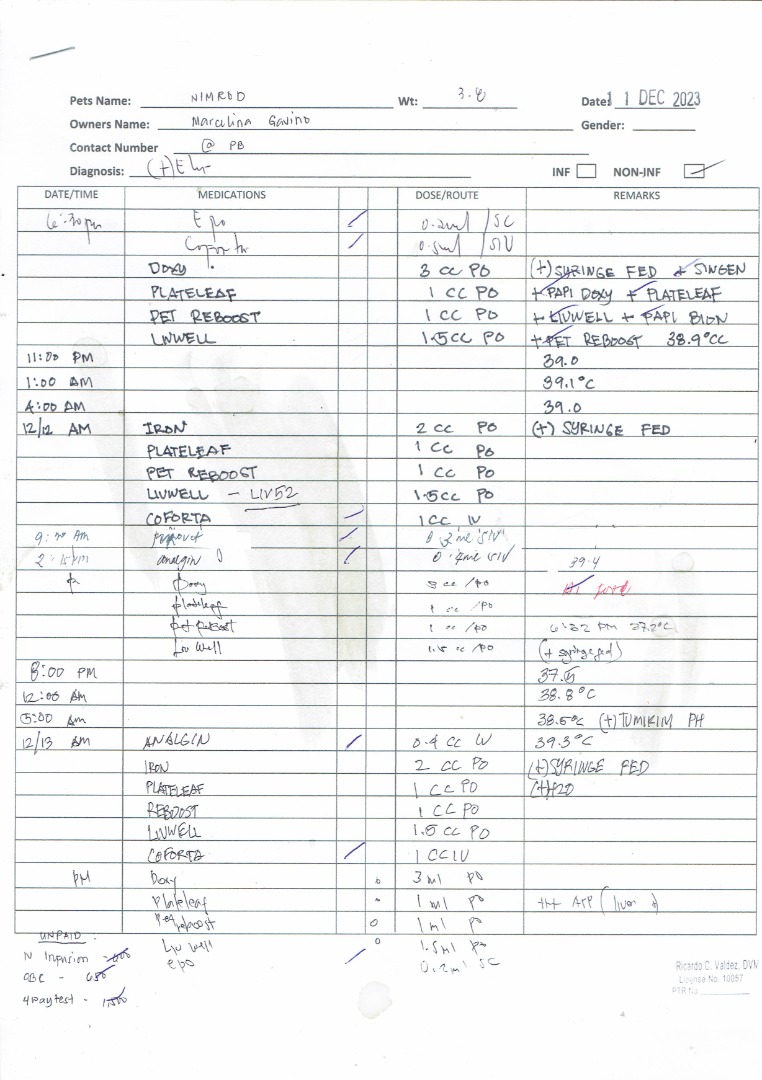 Pets Name: NIMROD Wt: 3.8 Date: 11 DEC 2023
Owners Name: Marcelina Gavino Gender:
Contact Number @ PB
Diagnosis: (+) INF NON-INF
DATE/TIME MEDICATIONS DOSE/ROUTE REMARKS
6:30pm Epo 0.2ml /SC
Coforta 0.5ml /SIV
DOXY 3 CC PO (+) SYRINGE FED + SINGEN
PLATELEAF 1 CC PO + PAPI DOXY + PLATELEAF
PET REBOOST 1 CC PO + LIVWELL + PAPI BION
LIVWELL 1.5CC PO + PET REBOOST 38.9°C
11:00 PM 39.0
1:00 AM 39.1°C
4:00 AM 39.0
12/12 AM IRON 2 CC PO (+) SYRINGE FED
PLATELEAF 1 CC PO
PET REBOOST 1 CC PO
LIVWELL - LIV52 1.5CC PO
COFORTA 1CC IV
9:30 AM 0.2ml SIV
2:15pm analgin 0.4ml SIV 39.4
Doxy 3 cc /po food
plateleaf 1 cc /po
pet reboost 1 cc /po 6:32 PM 37.2°C
Liv Well 1.5 cc /po (+ syringe fed)
8:00 PM 37.5
12:00 AM 38.8°C
5:00 Am 38.5°C (+) TUMIKIM PH
12/13 AM ANALGIN 0.4 CC IV 39.3°C
IRON 2 CC PO (+) SYRINGE FED
PLATELEAF 1 CC PO (+) H2O
REBOOST 1 CC PO
LIVWELL 1.5 CC PO
COFORTA 1 CC IV
PM Doxy 3 ml po
Plateleaf 1 ml po +++ APP (liver)
Pet reboost 1 ml po
Liv well 1.5ml po
epo 0.2ml SC
UNPAID:
IV Infusion -
CBC - 650
4 way test - 1500
Ricardo C. Valdez, DVM
License No. 10057
PTR No.